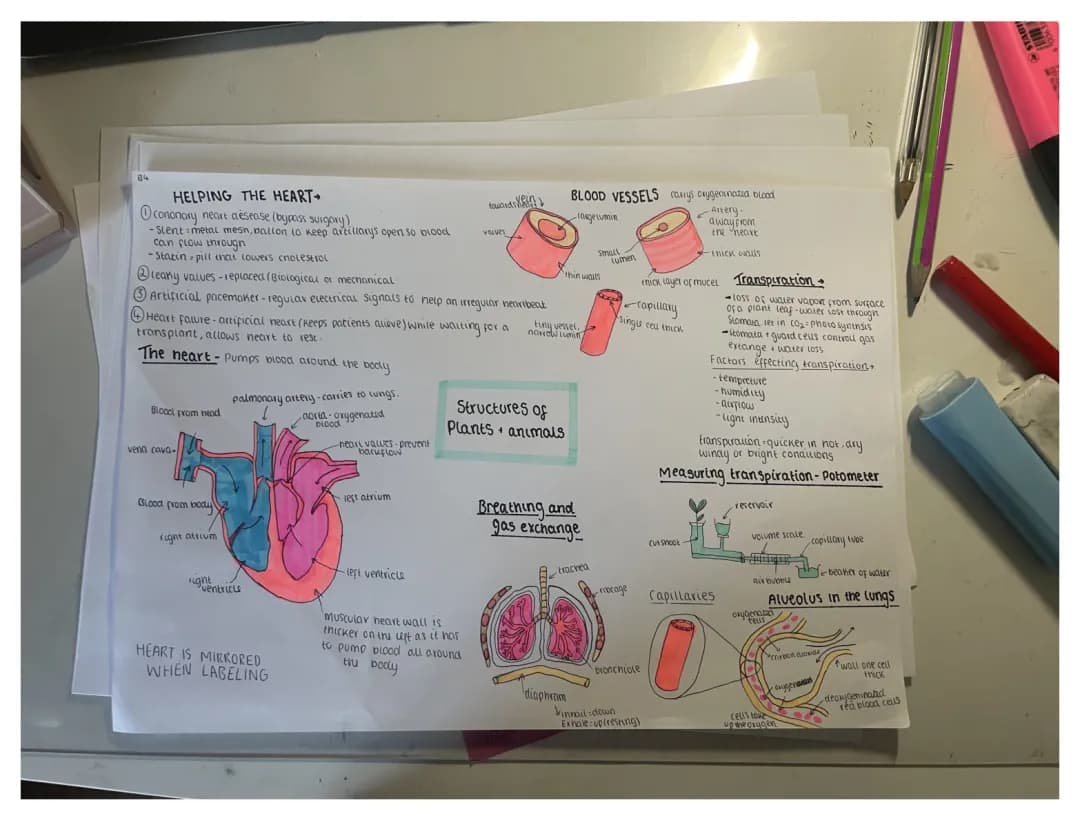 B4
HELPING THE HEART→
① coronary heart desease (bypass surgory)
- Stent = metal mesh, ballon to keep artillarys open so blood
can flow through
- Statin = pill that lowers cholestrol
② leaky values - replaced (Biological or mechanical
③ Artificial pacemaker - regular electrical signals to help an irregular hearbeat
④ Heart faiure - artificial heart (keeps patients alieve) while waiting for a
transplant, allows heart to rest.
The heart - Pumps blood around the body
pulmonary artery - carries to lungs.
Blood from head
aorta - oxygenated
blood
vena cava
heart values - prevent
backflow
left atrium
Blood from body
right atrium
left ventricle
right
ventricle
muscular heart wall is
thicker on the left as it has
to pump blood all around
the body
HEART IS MIRRORED
WHEN LABELING
BLOOD VESSELS
carrys oxygeninated blood
vein
towards heart
large lumin
valves
thin walls
Artery -
away from
the heart
small
lumen
thick walls
thick layer of muscel
capillary
single cell thick
tiny vessel,
narrow lumin
Structures of
Plants + animals
Transpiration →
→ loss of water vapour from surface
of a plant leaf - water lost through
Stomata let in CO₂ = photosynthisis
→ Stomata + guard cells controll gas
extange + water loss
Factors effecting transpiration →
- tempreture
- humidity
- airflow
- light intensity
transpiration = quicker in hot, dry
windy or bright conditions
Measuring transpiration - Potometer
reservoir
cut shoot
volume scale
capillary tube
air bubble
beaker of water
Breathing and
gas exchange
trachea
ribcage
bronchiole
diaphram
inhail = down
Exhale = up (resting)
Capillaries
Alveolus in the lungs
oxygenated
cells
carbon dioxide
wall one cell
thick
oxygen
deoxygeninated
red blood cells
cells take
up the oxygen